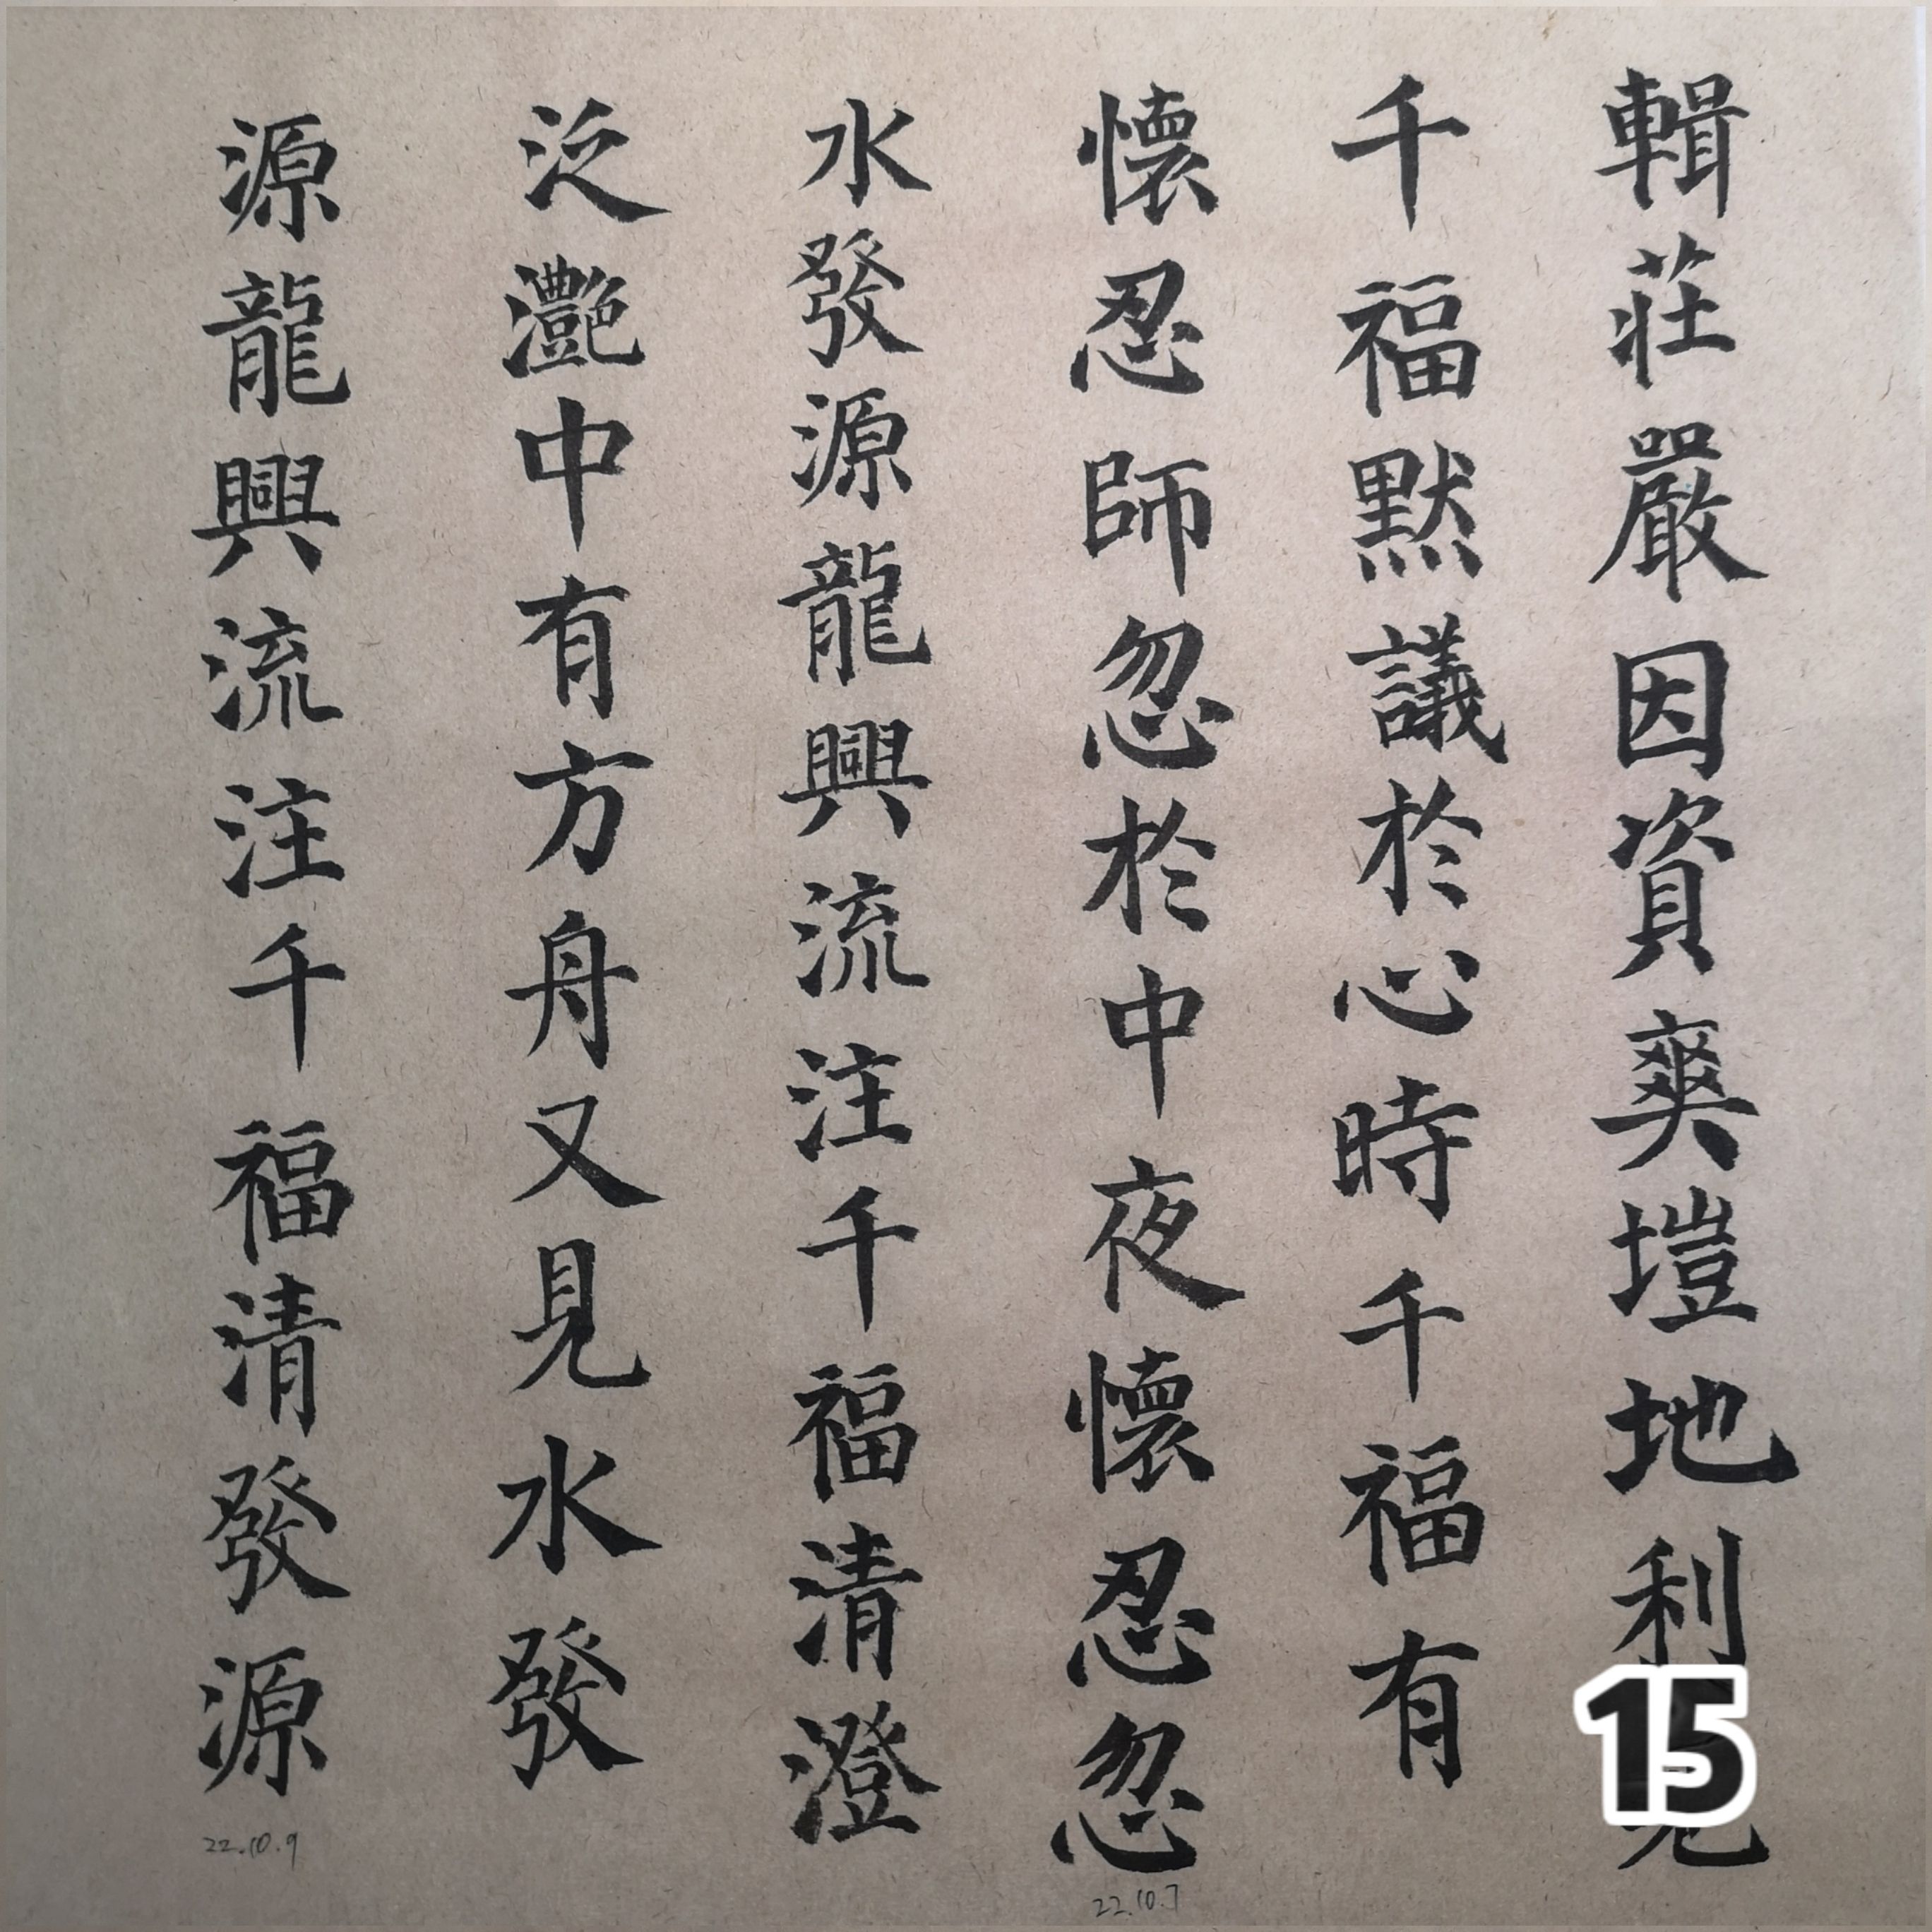 輯莊嚴因資爽塏地利見
千福黙議於心時千福有
懷忍師忽於中夜懷忍忽
22.10.7
水發源龍興流注千福清澄
泛灔中有方舟又見水發
源龍興流注千福清發源
22.10.9
15